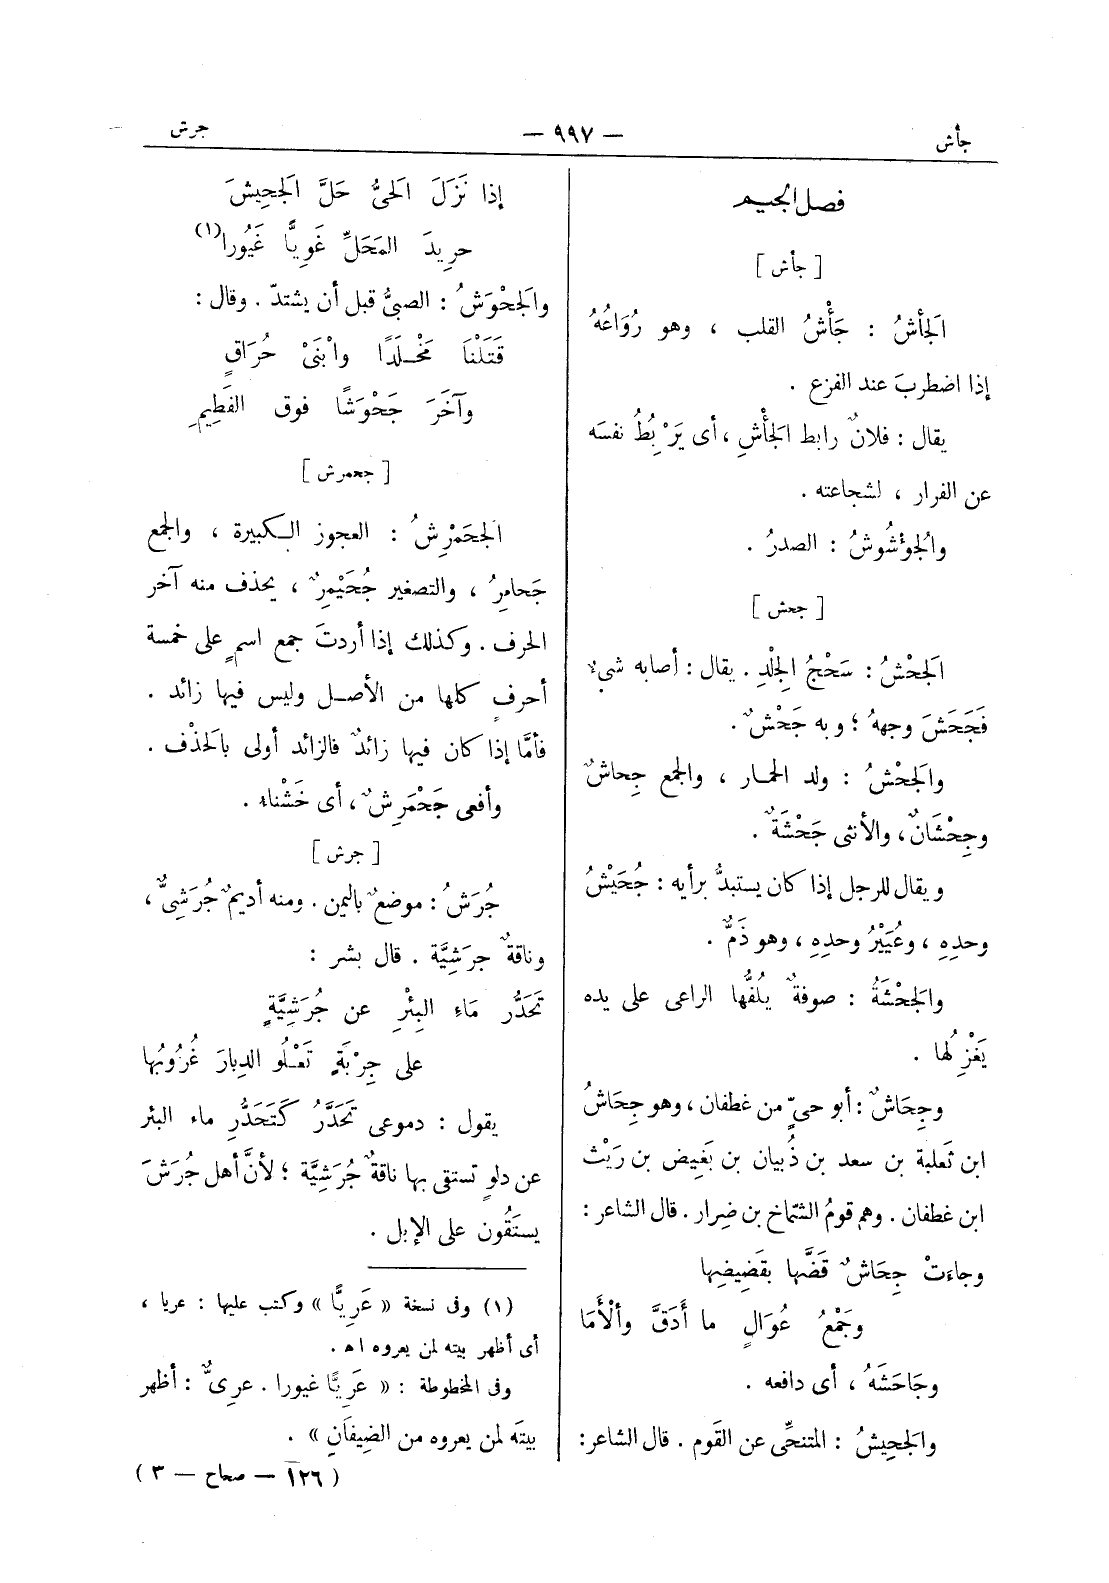 جأش
— ٩٩٧ —
جرش
فصل الجيم
[ جأش ]
الَجأشُ : جَأْشُ القلب ، وهو رُوَاعُهُ
إذا اضطربَ عند الفزع .
يقال : فلانٌ رابط الَجأْشِ ، أى يَرْبِطُ نفسَه
عن الفرار ، لشجاعته .
والُجؤْشُوشُ : الصدرُ .
[ جحش ]
الَجحْشُ : سَحْجُ الِجْلدِ . يقال : أصابه شىء
فَجَحَشَ وجههُ ؛ و به جَحْشٌ .
والَجحْشُ : ولد الحمار ، والجمع جِحاشٌ
وجِحْشَانٌ ، والأنثى جَحْشَةٌ .
و يقال للرجل إذا كان يستبدُّ برأيه : جُحَيْشُ
وحدِهِ ، وعُيَيْرُ وحدِهِ ، وهو ذَمٌّ .
والَجحْشَةُ : صوفةٌ يلُفُّها الراعى على يده
يَغْزِلُها .
وجِحَاشٌ : أبو حىٍّ من غطفان ، وهو جِحَاشُ
ابن ثعلبةَ بن سعد بن ذُبيان بن بَغيض بن رَيْث
ابن غطفان . وهم قومُ الشمّاخ بن ضِرار . قال الشاعر :
وجاءتْ جِحَاشٌ قَضَّها بقَضِيضِها
وجَمْعُ عُوَالٍ ما أَدَقَّ وألْأَمَا
وجَاحَشَهُ ، أى دافعه .
والَجحِيشُ : المتنحِّى عن القَوم . قال الشاعر :
إذا نَزَلَ الَحىُّ حَلَّ الَجحِيشَ
حرِيدَ المَحَلِّ غَوِيًّا غَيُورا(١)
والَجحْوَشُ : الصبىُّ قبل أن يشتدّ . وقال :
قَتَلْنَا مَخْـلَدًا وابْنَىْ حُرَاقٍ
وآخَرَ جَحْوَشًا فوق الفَطِيمِ
[ جحمرش ]
الَجحَمْرِشُ : العجوز الـكبيرة ، والجمع
جَحامِرُ ، والتصغير جُحَيْمِرٌ ، يحذف منه آخر
الحرف . وكذلك إذا أردتَ جمع اسمٍ على خمسة
أحرفٍ كلها من الأصـل وليس فيها زائد .
فأمَّا إذا كان فيها زائدٌ فالزائد أولى بالَحذْف .
وأفعى جَحْمَرِشٌ ، أى خَشْناء .
[ جرش ]
جُرَشُ : موضعٌ باليمن . ومنه أديمٌ جُرَشِىٌّ ،
وناقةٌ جرَشِيَّة . قال بشر :
تَحَدُّر مَاءِ البِئْرِ عن جُرَشِيَّةٍ
على جِرْبَةٍ تَعْـلُو الدِبارَ غُرُوبُها
يقول : دموعى تَحَدَّرُ كَتَحَدُّرِ ماء البئر
عن دلوٍ تستقى بها ناقةٌ جُرَشِيَّة ؛ لأنَّ أهل جُرَشَ
يستَقُون على الإبل .
(١) وفى نسخة « عَرِيًّا » وكتب عليها : عريا ،
أى أظهر بيته لمن يعروه اه .
وفى المخطوطة : « عَرِيًّا غيورا . عرىٌّ : أظهر
بيتَه لمن يعروه من الضِيفَانِ » .
( ١٢٦ — صحاح — ٣ )